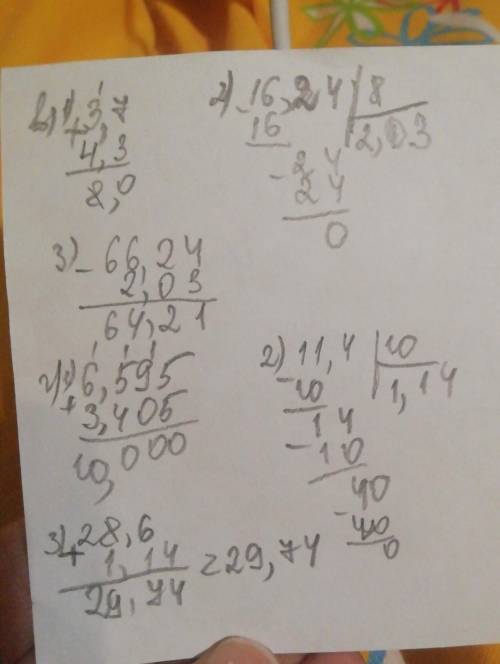 в) 1) 3,7
+ 4,3
8,0
2) - 16,24 | 8
16 | 2,03
- 24
24
0
3) - 66,24
2,03
64,21
г) 1) 6,595
+ 3,405
10,000
2) 11,4 | 10
- 10 | 1,14
14
- 10
40
- 40
0
3) 28,6
+ 1,14 = 29,74
29,74